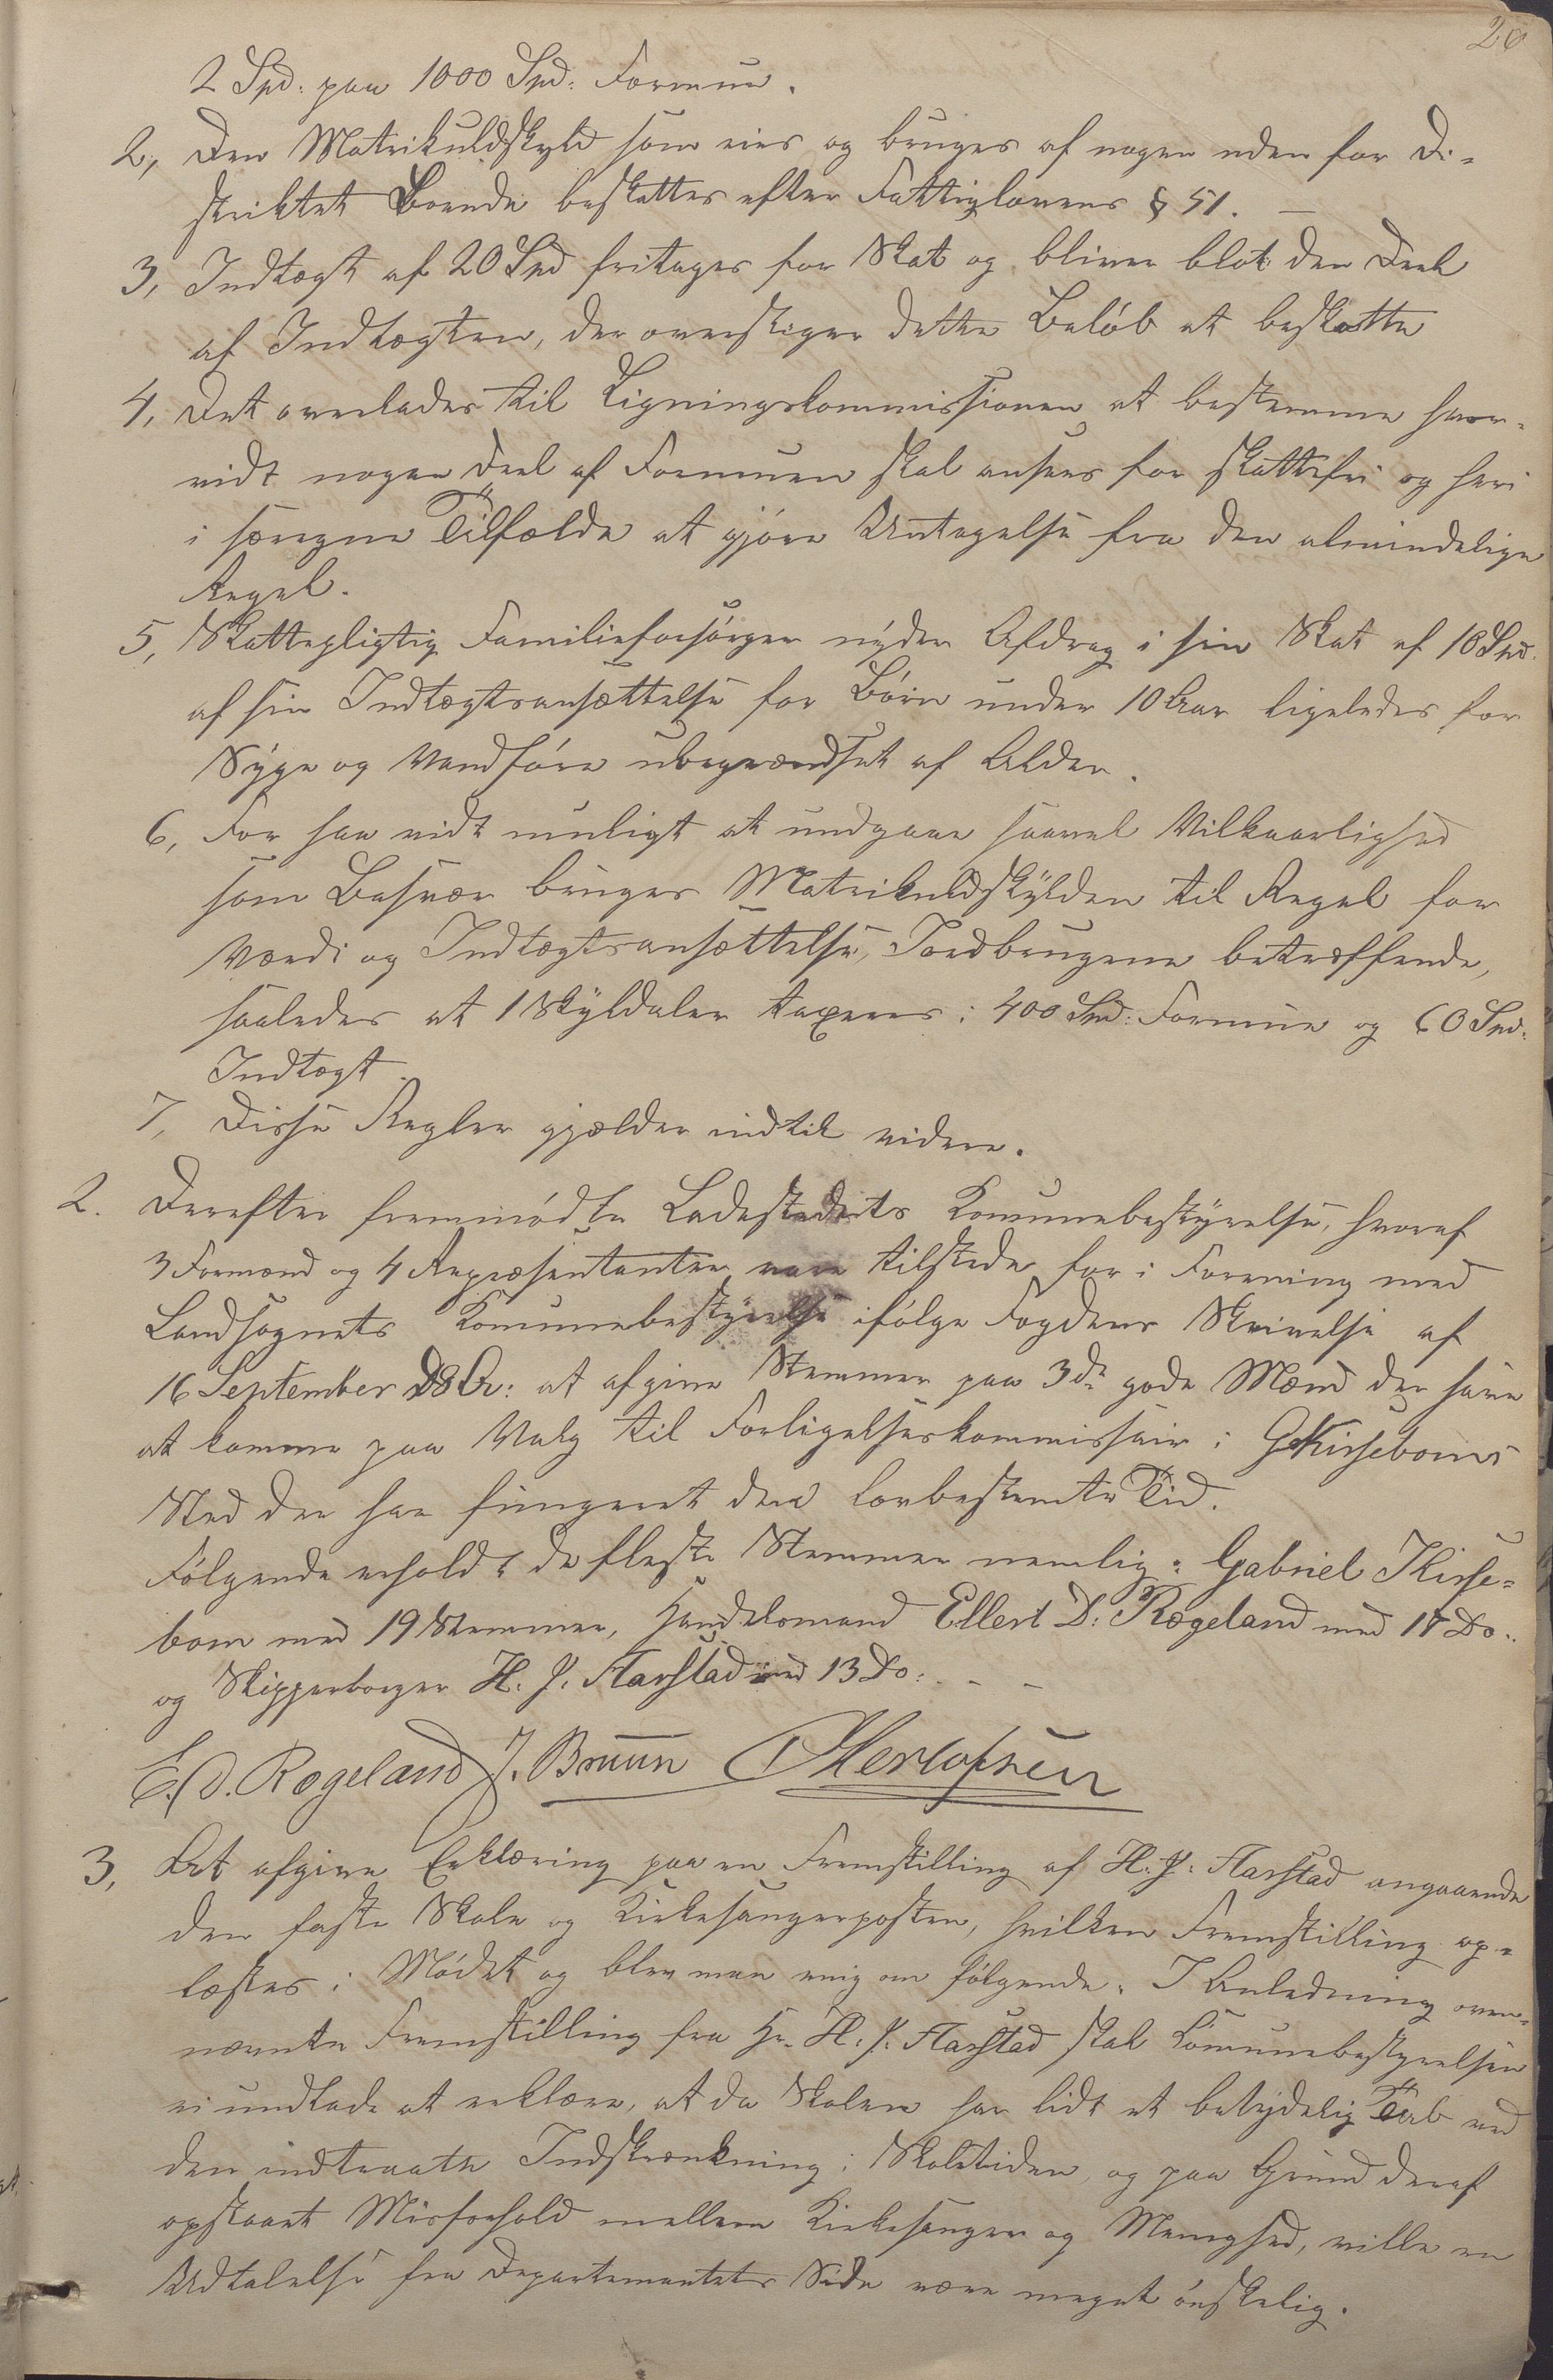 20
2 Spd: paa 1000 Spd: Formue.
2, Den Matrikuldskyld som eies og bruges af nogen uden for Di-
striktet Boende beskattes efter Fattiglovens § 51. —
3, Indtægt af 20 Spd fritages for Skat og bliver blot den Deel
af Indtægten, der overstiger dette Beløb at beskatte
4, Det overlades til Ligningskommissionen at bestemme hvor-
vidt nogen Deel af Formuen skal ansees for skattefri og heri
i særegne Tilfælde at gjøre Untagelse fra den almindelige
Regel.
5, Skattepligtig Familieforsørger nyder Afdrag i sin Skat af 18 Spd.
af sin Indtægtsansættelse for Børn under 10 Aar ligeledes for
Syge og Vandføre ubegrændset af Alder.
6, For saa vidt muligt at undgaae saavel Vilkaarlighed
som Besvær bruges Matrikuldskylden til Regel for
Værdi og Indtægtsansættelse, Jordbrugene betræffende,
saaledes at 1 Skyldaler taxeres i 400 Spd: Formue og 60 Spd:
Indtægt.
7, Disse Regler gjælder indtil videre.
2. Derefter fremmødte Ladestedets Kommunebestyrelse, hvoraf
3 Formænd og 4 Repræsentanter vare tilstede for i Forening med
Landsognets Kommunebestyrelse ifølge Fogdens Skrivelse af
16 September D8 A: at afgive Stemmer paa 3de gode Mænd der have
at komme paa Valg til Forligelseskommissair i G Kirseboms
Sted der har fungeret den lovbestemte Tid.
Følgende erholdt de fleste Stemmer nemlig: Gabriel Kirse-
bom med 19 Stemmer, Handelsmand Ellert D: Rægeland med 17 Do:
og Skipperborger H. J. Harstad med 13 Do: - -
E. D. Rægeland J. Bruun O Herlofsen
3, At afgive Erklæring paa en Fremstilling af H. J. Harstad angaaende
den faste Skole og Kirkesangerposten, hvilken Fremstilling op-
læstes i Mødet og blev man enig om følgende: I Anledning oven-
nævnte Fremstilling fra Hr. H. J. Harstad skal Kommunebestyrelsen
ei undlade at erklære, at da Skolen har lidt et betydelig Tab ved
den indtraadte Indskrænkning i Skoletiden, og paa Grund deraf
opstaaet Misforhold mellem Kirkesanger og Menighed, ville en
Udtalelse fra Departementets Side være meget ønskelig.